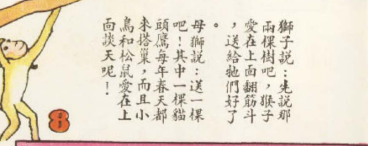 獅子說：先說那
兩棵樹吧，猴子
愛在上面翻筋斗
，送給牠們好了
。
母獅說：送一棵
吧！其中一棵貓
頭鷹每年春天都
來搭巢，而且小
鳥和松鼠愛在上
面談天呢！
8